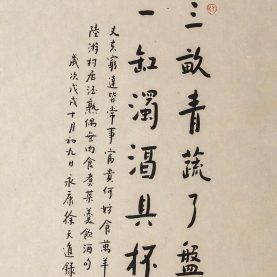 三畝青蔬了盤
一缸濁酒具杯
丈夫窮達皆常事富貴何妨食萬羊
陸游村居酒熟偶無肉食煮菜羹飲酒句
歲次戊戌十月初九日永康徐天進錄